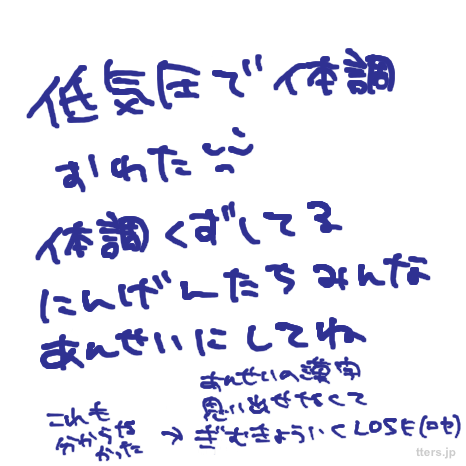 低気圧で体調
おわた
体調くずしてる
にんげんたちみんな
あんせいにしてね
あんせいの漢字
思い出せなくて
これも
分からな
かった
→ ぎむきょういくLOSE(ロセ)
tters.jp